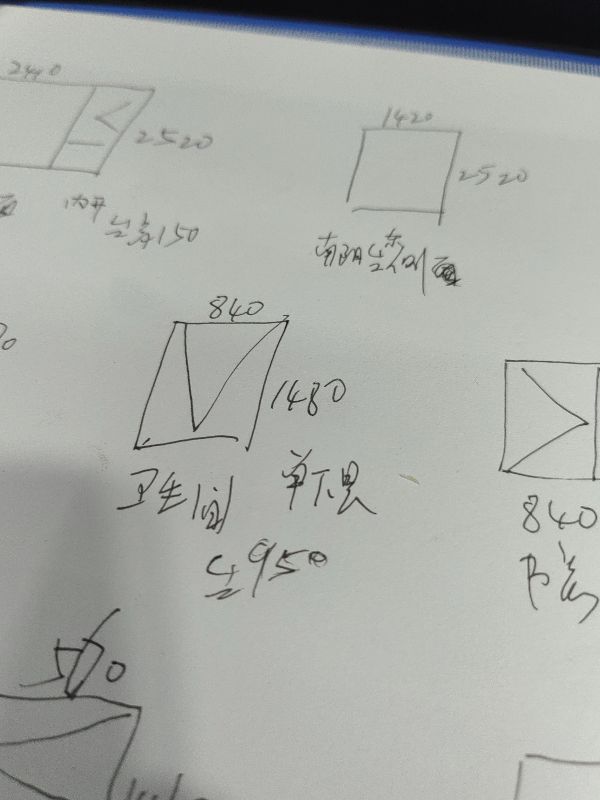 2440
2520
内开
台高150
1420
2520
南阳台东侧面
840
1480
卫生间 单下悬
台950
840